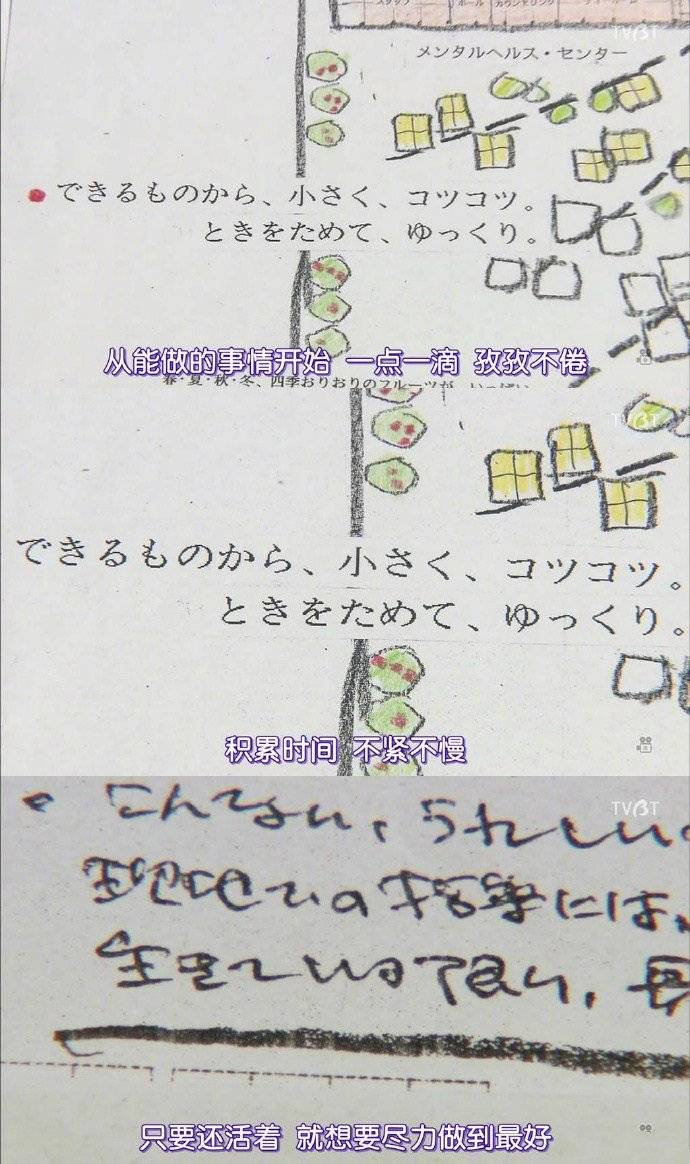 スタッフ
ホール
カウンセリング
TVBT
メンタルヘルス・センター
できるものから、小さく、コツコツ。
ときをためて、ゆっくり。
从能做的事情开始 一点一滴 孜孜不倦
春・夏・秋・冬、四季おりおりのフルーツが、いっぱい
TVBT
できるものから、小さく、コツコツ。
ときをためて、ゆっくり。
积累时间 不紧不慢
TVBT
こんなない、うれしい
現地での指導には、
生きている限り、長
只要还活着 就想要尽力做到最好